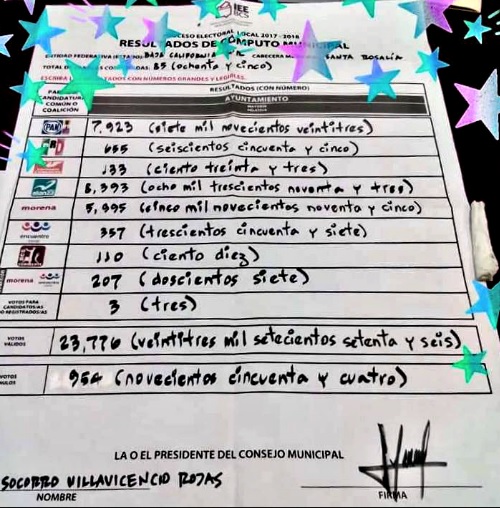 IEE
BCS
PROCESO ELECTORAL LOCAL 2017 - 2018
RESULTADOS DE CÓMPUTO MUNICIPAL
ENTIDAD FEDERATIVA BAJA CALIFORNIA CABECERA SANTA ROSALÍA
TOTAL DE DAS: 85 (ochenta y cinco)
ESCRIBA RESULTADOS CON NÚMEROS GRANDES Y LEGIBLES.
RESULTADOS (CON NÚMERO)
CANDIDATURA COMÚN O COALICIÓN
AYUNTAMIENTO
PAN 7,923 (siete mil novecientos veintitres)
655 (seiscientos cincuenta y cinco)
133 (ciento treinta y tres)
alianza 8,393 (ocho mil trescientos noventa y tres)
morena 5,995 (cinco mil novecientos noventa y cinco)
encuentro 357 (trescientos cincuenta y siete)
110 (ciento diez)
morena 207 (doscientos siete)
VOTOS PARA CANDIDATOS/AS NO REGISTRADOS/AS 3 (tres)
VOTOS VÁLIDOS 23,776 (veintitres mil setecientos setenta y seis)
954 (novecientos cincuenta y cuatro)
LA O EL PRESIDENTE DEL CONSEJO MUNICIPAL
SOCORRO VILLAVICENCIO ROJAS
NOMBRE FIRMA